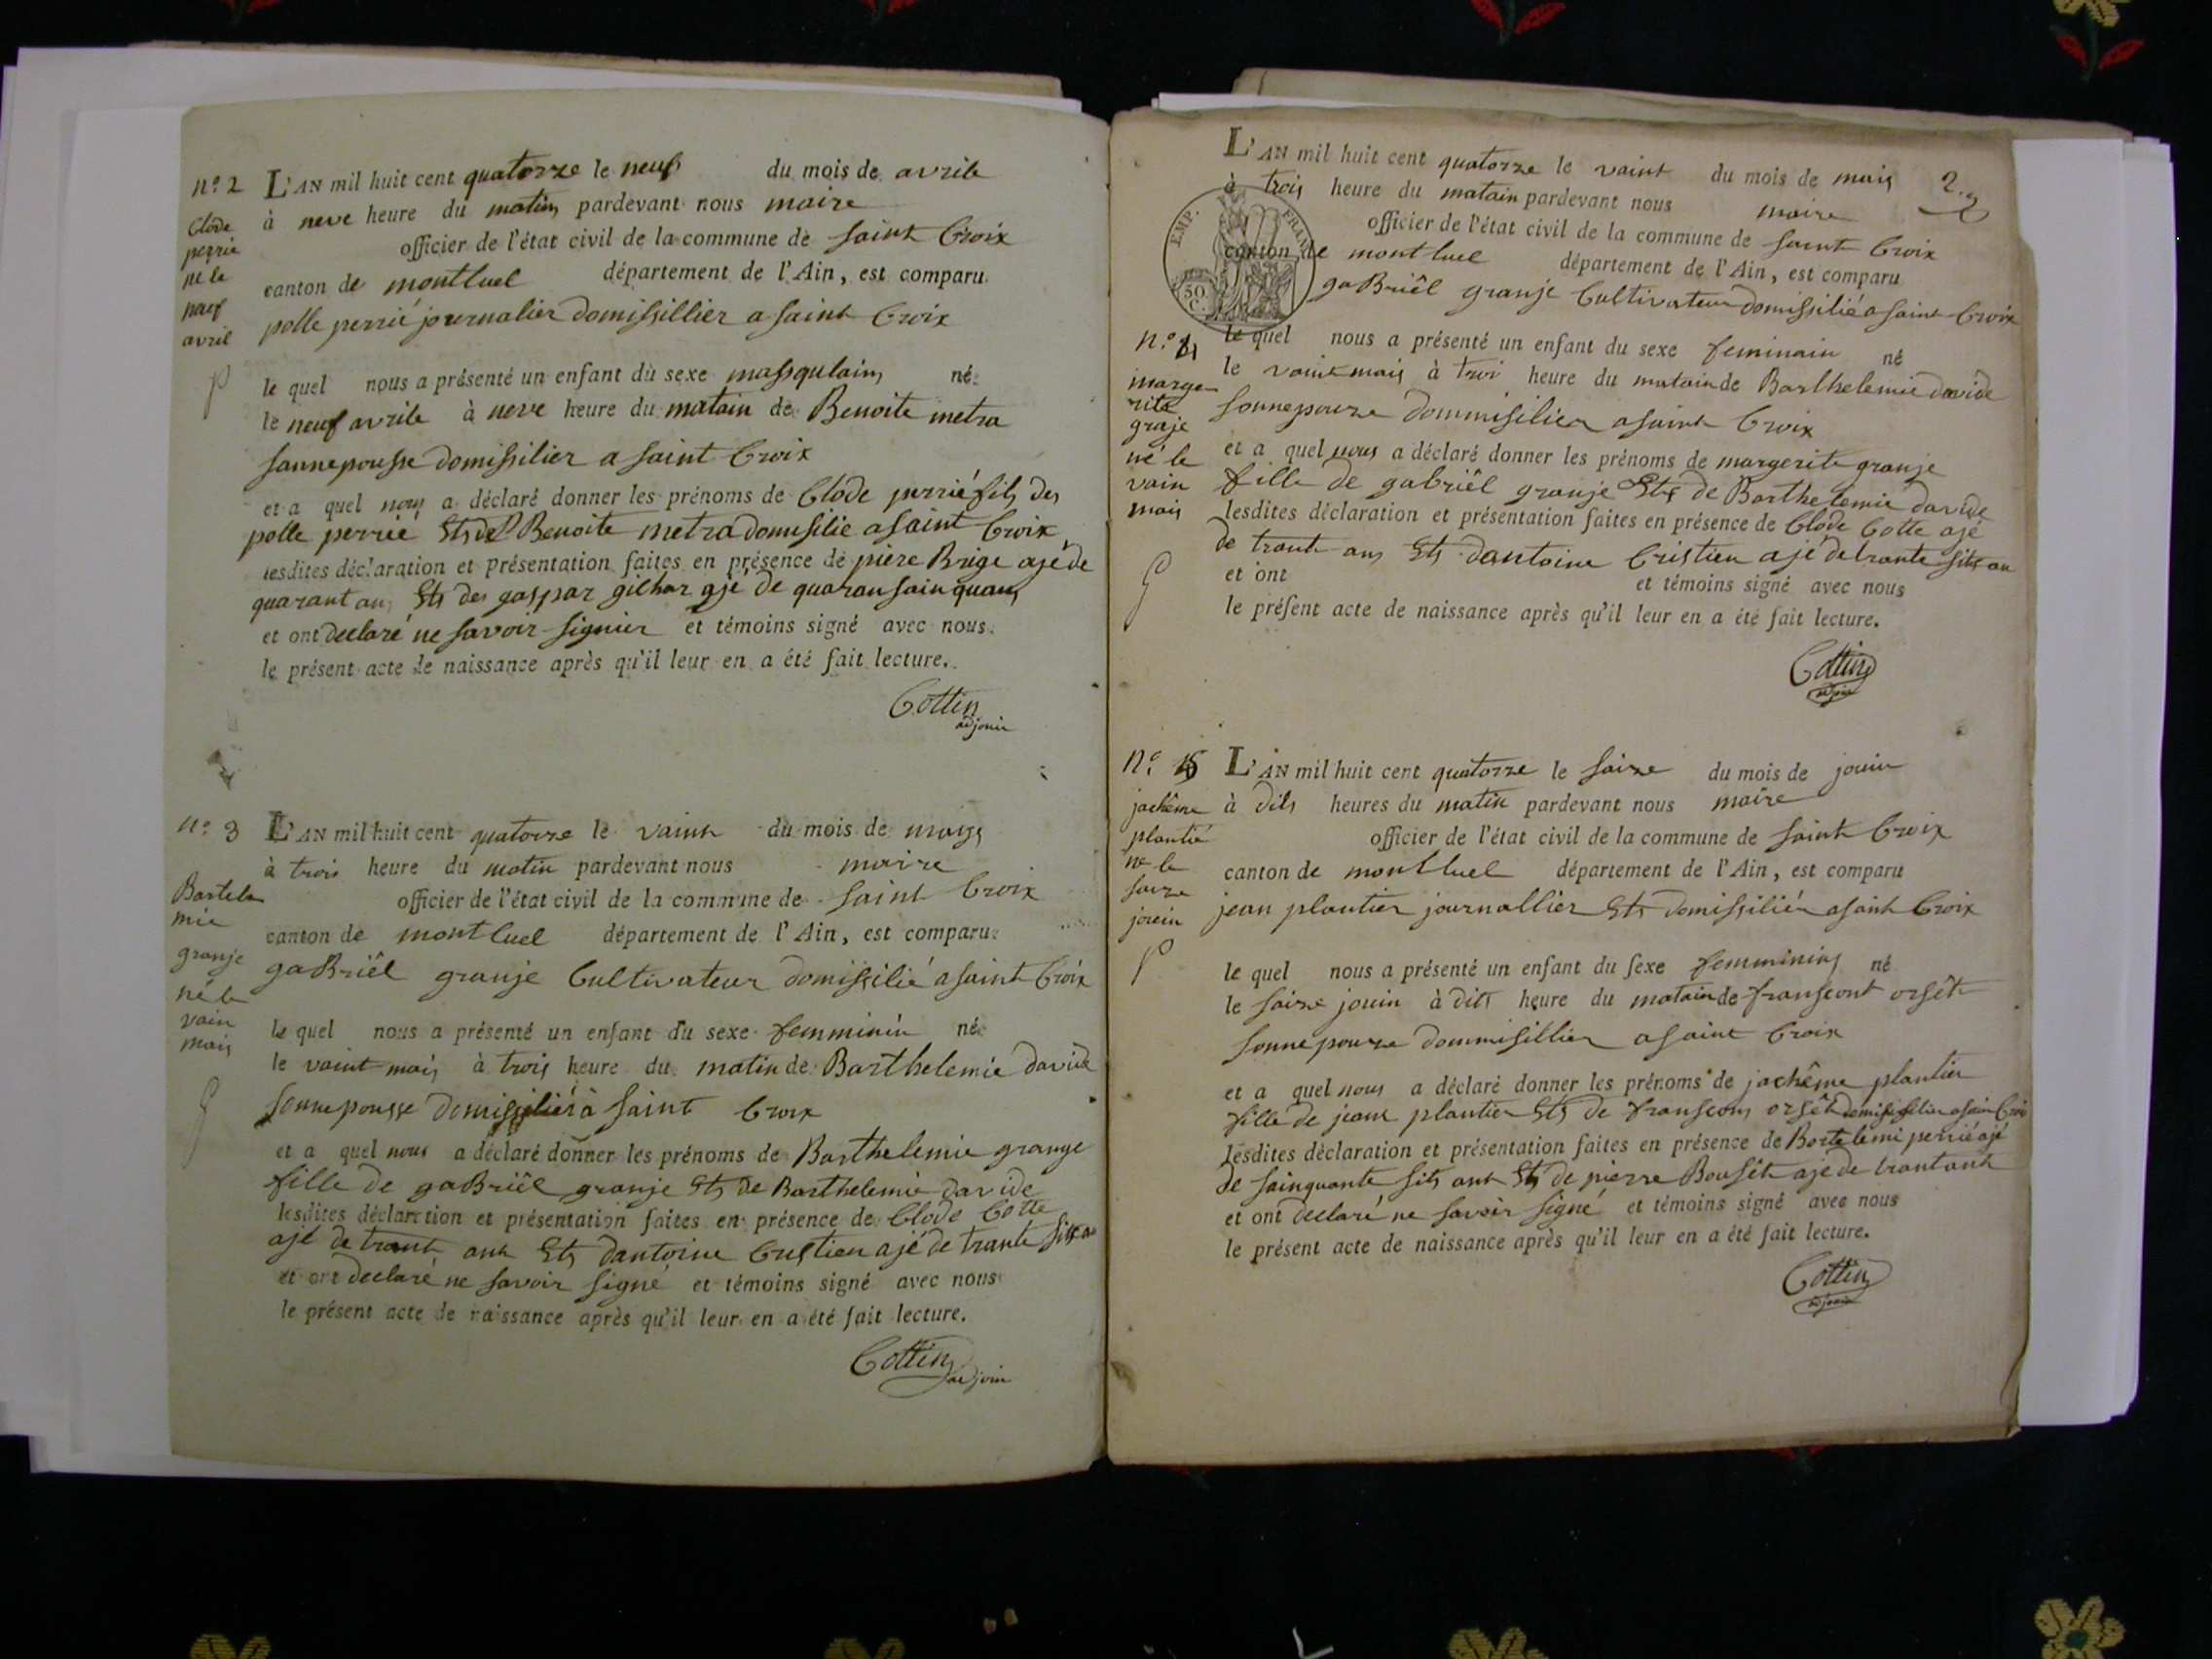 n.º 2
Clode
perrie
ne le
neuf
avril
L'AN mil huit cent quatorze le neuf du mois de avrile
à neve heure du matin pardevant nous maire
officier de l'état civil de la commune de saint Croix
canton de montluel département de l'Ain, est comparu
polle perrié journalier domissillier a saint Croix
le quel nous a présenté un enfant du sexe masqulain né
le neuf avrile à neve heure du matain de Benoite metra
sonnepousse domissilier a saint Croix
et a quel nous a déclaré donner les prénoms de Clode perrié fils des
polle perrié Ets de Benoite metra domisilie a saint Croix
lesdites déclaration et présentation faites en présence de piere Brige ajé de
quarant an Ets des gaspar gilhar ajé de quaran sainq uans
et ont declaré ne savoir signier et témoins signé avec nous
le présent acte de naissance après qu'il leur en a été fait lecture.
Cottin
adjouin
n.º 3
Bartele
mie
granje
né le
vain
mais
L'AN mil huit cent quatorze le vaint du mois de mais
à trois heure du matin pardevant nous maire
officier de l'état civil de la commune de saint Croix
canton de montluel département de l'Ain, est comparu
gaBriêl granje Cultivateur domissilié a saint Croix
le quel nous a présenté un enfant du sexe femminin né
le vaint mais à trois heure du matin de Barthelemie davide
sonnepousse domissiliér à saint Croix
et a quel nous a déclaré donner les prénoms de Barthelemie grange
fille de gaBriêl granje Ets de Barthelemie davide
lesdites déclaration et présentation faites en présence de Clode Cotte
ajé de trant ans Ets dantoine Cristien ajé de trante sits an
et ont declaré ne savoir signé et témoins signé avec nous
le présent acte de naissance après qu'il leur en a été fait lecture.
Cottin
adjoin
2.
EMP. FRAN
50
C.
n.º 4
marge
rite
graje
né le
vain
mais
L'AN mil huit cent quatorze le vaint du mois de mais
à trois heure du matain pardevant nous maire
officier de l'état civil de la commune de saint Croix
canton de montluel département de l'Ain, est comparu
gaBriêl granje Cultivateur domissilié a saint Croix
le quel nous a présenté un enfant du sexe feminain né
le vaint mais à troi heure du matain de Barthelemie davide
sonnepouze dommisilier a saint Croix
et a quel nous a déclaré donner les prénoms de margerite granje
fille de gabriêl granje Ets de Barthelemie davide
lesdites déclaration et présentation faites en présence de Clode Cotte ajé
de trante ans Ets dantoine Cristien ajé de trante sits an
et ont et témoins signé avec nous
le présent acte de naissance après qu'il leur en a été fait lecture.
Cottin
adjoin
n.º 5
jachême
plantié
ne le
saize
jouin
L'AN mil huit cent quatorze le saize du mois de jouin
à dits heures du matin pardevant nous maire
officier de l'état civil de la commune de saint Croix
canton de montluel département de l'Ain, est comparu
jean plantier journallier Ets domissiliér a saint Croix
le quel nous a présenté un enfant du sexe femminins né
le saize jouin à dits heure du matain de franseont orsêt
sonnepouze dommisillier a saint Croix
et a quel nous a déclaré donner les prénoms de jachême plantier
fille de jean plantier Ets de franseons orsêt domissilier a saint Croix
lesdites déclaration et présentation faites en présence de Bartelemi perrié ajé
de sainquante sits ans Ets de pierre Bousêt aje de trantans
et ont declaré ne savoir signé et témoins signé avec nous
le présent acte de naissance après qu'il leur en a été fait lecture.
Cottin
adjoin